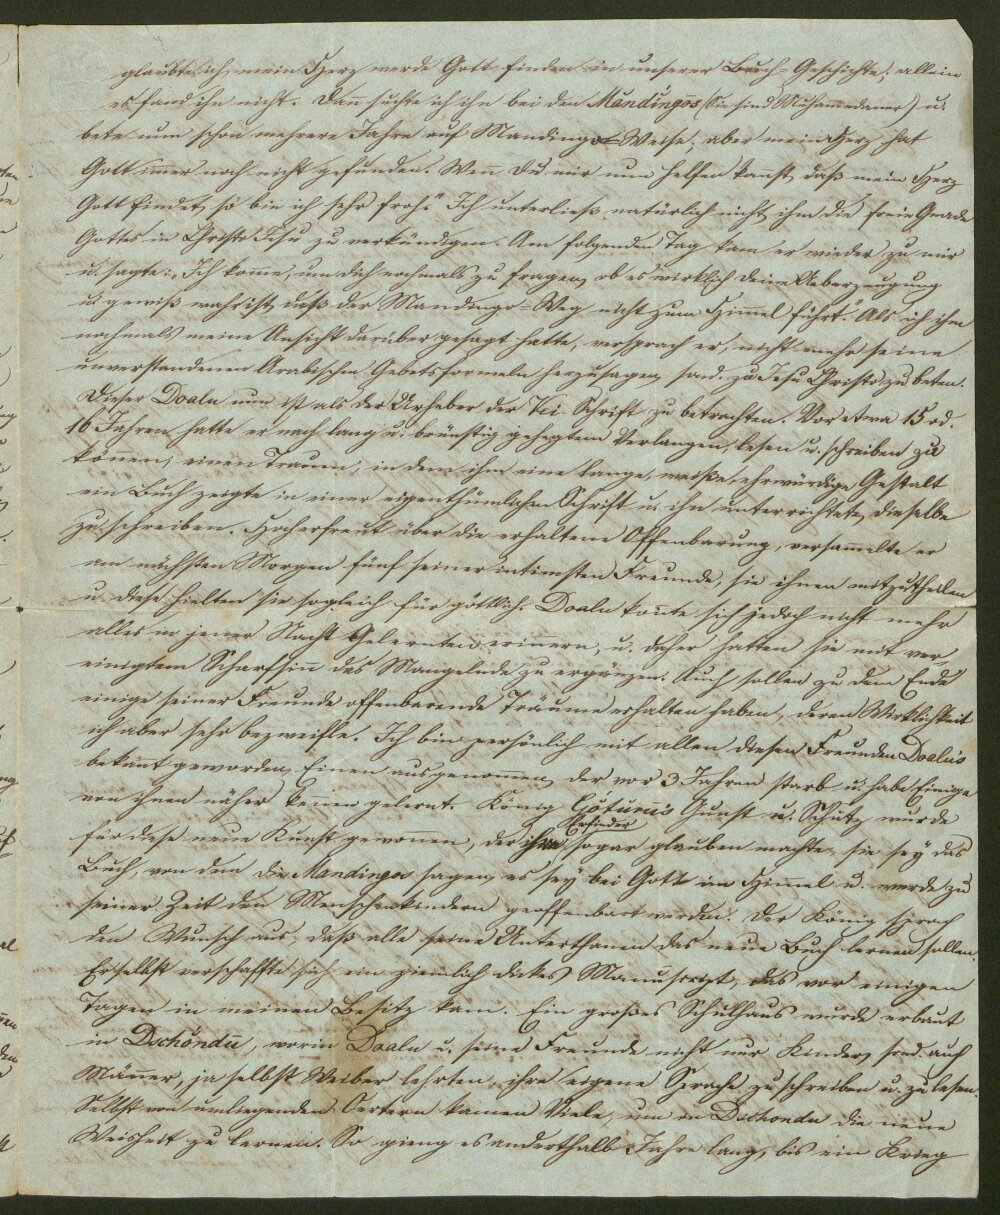 glaubte ich, mein Herz werde Gott finden in unserer Buch-Geschichte; allein
es fand ihn nicht. Dann suchte ich ihn bei den Mandingos (Sie sind Muhammedaner) u.
bete nun schon mehrere Jahre auf Mandingo-Weise; aber mein Herz hat
Gott immer noch nicht gefunden. Wenn Du mir nun helfen kanst, daß mein Herz
Gott findet, so bin ich sehr froh." Ich unterließ natürlich nicht, ihm die freie Gnade
Gottes in Christo Jesu zu verkündigen. Am folgenden Tag kam er wieder zu mir
u. sagte: „Ich komme, um dich nochmals zu fragen, ob es wirklich deine Ueberzeugung
u. gewiß wahr ist, daß der Mandingo-Weg nicht zum Himmel führt." Als ich ihm
nochmals meine Ansicht darüber gesagt hatte, versprach er, nicht mehr seine
unverstandenen Arabischen Gebetsformeln herzusagen, sond. zu Jesu Christo zu beten.
Dieser Doalu nun ist als der Urheber der Vei-Schrift zu betrachten. Vor etwa 15 od.
16 Jahren hatte er nach lang u. brünstig gehegtem Verlangen, lesen u. schreiben zu
können, einen Traum, in dem ihm eine lange, weiße, ehrwürdige Gestalt
ein Buch zeigte in einer eigenthümlichen Schrift u. ihn unterrichtete, dieselbe
zu schreiben. Hocherfreut über die erhaltene Offenbarung, versammelte er
am nächsten Morgen fünf seiner intimsten Freunde, sie ihnen mitzutheilen
u. diese hielten sie sogleich für göttlich. Doalu konnte sich jedoch nicht mehr
alles in jener Nacht Gelernten erinnern, u. daher hatten sie mit ver-
einigtem Scharfsinn das Mangelnde zu ergänzen. Auch sollen zu dem Ende
einige seiner Freunde offenbarende Träume erhalten haben, deren Wirklichkeit
ich aber sehr bezweifle. Ich bin persönlich mit allen diesen Freunden Doalu's
bekannt geworden, Einen ausgenommen, der vor 3 Jahren starb u. habe Einige
von ihnen näher kennen gelernt. König Gótúrú's Gunst u. Schutz wurde
für diese neue Kunst gewonnen, der Erfinder sogar glauben machte, sie sey das
Buch, von dem die Mandingos sagen, es sey bei Gott im Himmel u. werde zu
seiner Zeit den Menschenkindern geoffenbart werden. Der König sprach
den Wunsch aus, daß alle seine Unterthanen das neue Buch lernen sollen.
Er selbst verschaffte sich ein ziemlich dickes Manuscript, das vor einigen
Tagen in meinen Besitz kam. Ein großes Schulhaus wurde erbaut
in Dschóndu, worin Doalu u. seine Freunde nicht nur Kinder, sond. auch
Männer, ja selbst Weiber lehrten, ihre eigene Sprache zu schreiben u. zu lesen.
Selbst von umliegenden Oertern kamen Viele, um in Dschondu die neue
Weisheit zu lernen. So gieng es anderthalb Jahre lang, bis ein Krieg